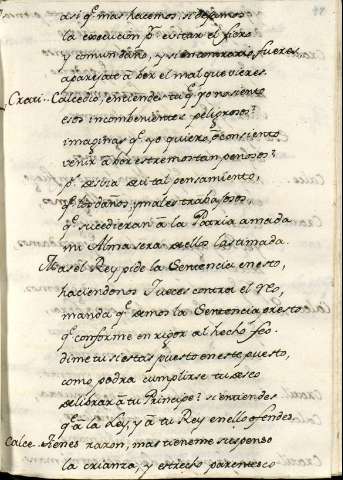 asi q.e mas hacemos, si dejamos
la execucion p.r evitar el fiero
y comun daño, y si en contrario fueres
aparejate a ber el mal que vieres.
Crati.. Calcedio, entiendes tu q.e yo no siento
esos incombenientes peligrosos?
imaginas q.e yo quiero, o consiento
venir a ber estremos tan penosos?
tal pensamiento,
q.e los daños, y males trabajosos
q.e sucedieran à la Patria amada
mi Alma será de ellos lastimada.
Mas el Rey pide la Sentencia en esto,
haciendonos Jueces contra el Reo,
manda q.e demos la Sentencia presto
q.e conforme en rigor al hecho feo.
dime tu si estas puesto en este puesto,
como podra cumplirse tu deseo
de librar a tu Principe? si entiendes
q.e à la Ley, y à tu Rey en ello ofendes.
Calce.. Tienes razon, mas tieneme suspenso
la crianza, y estrecho parentesco